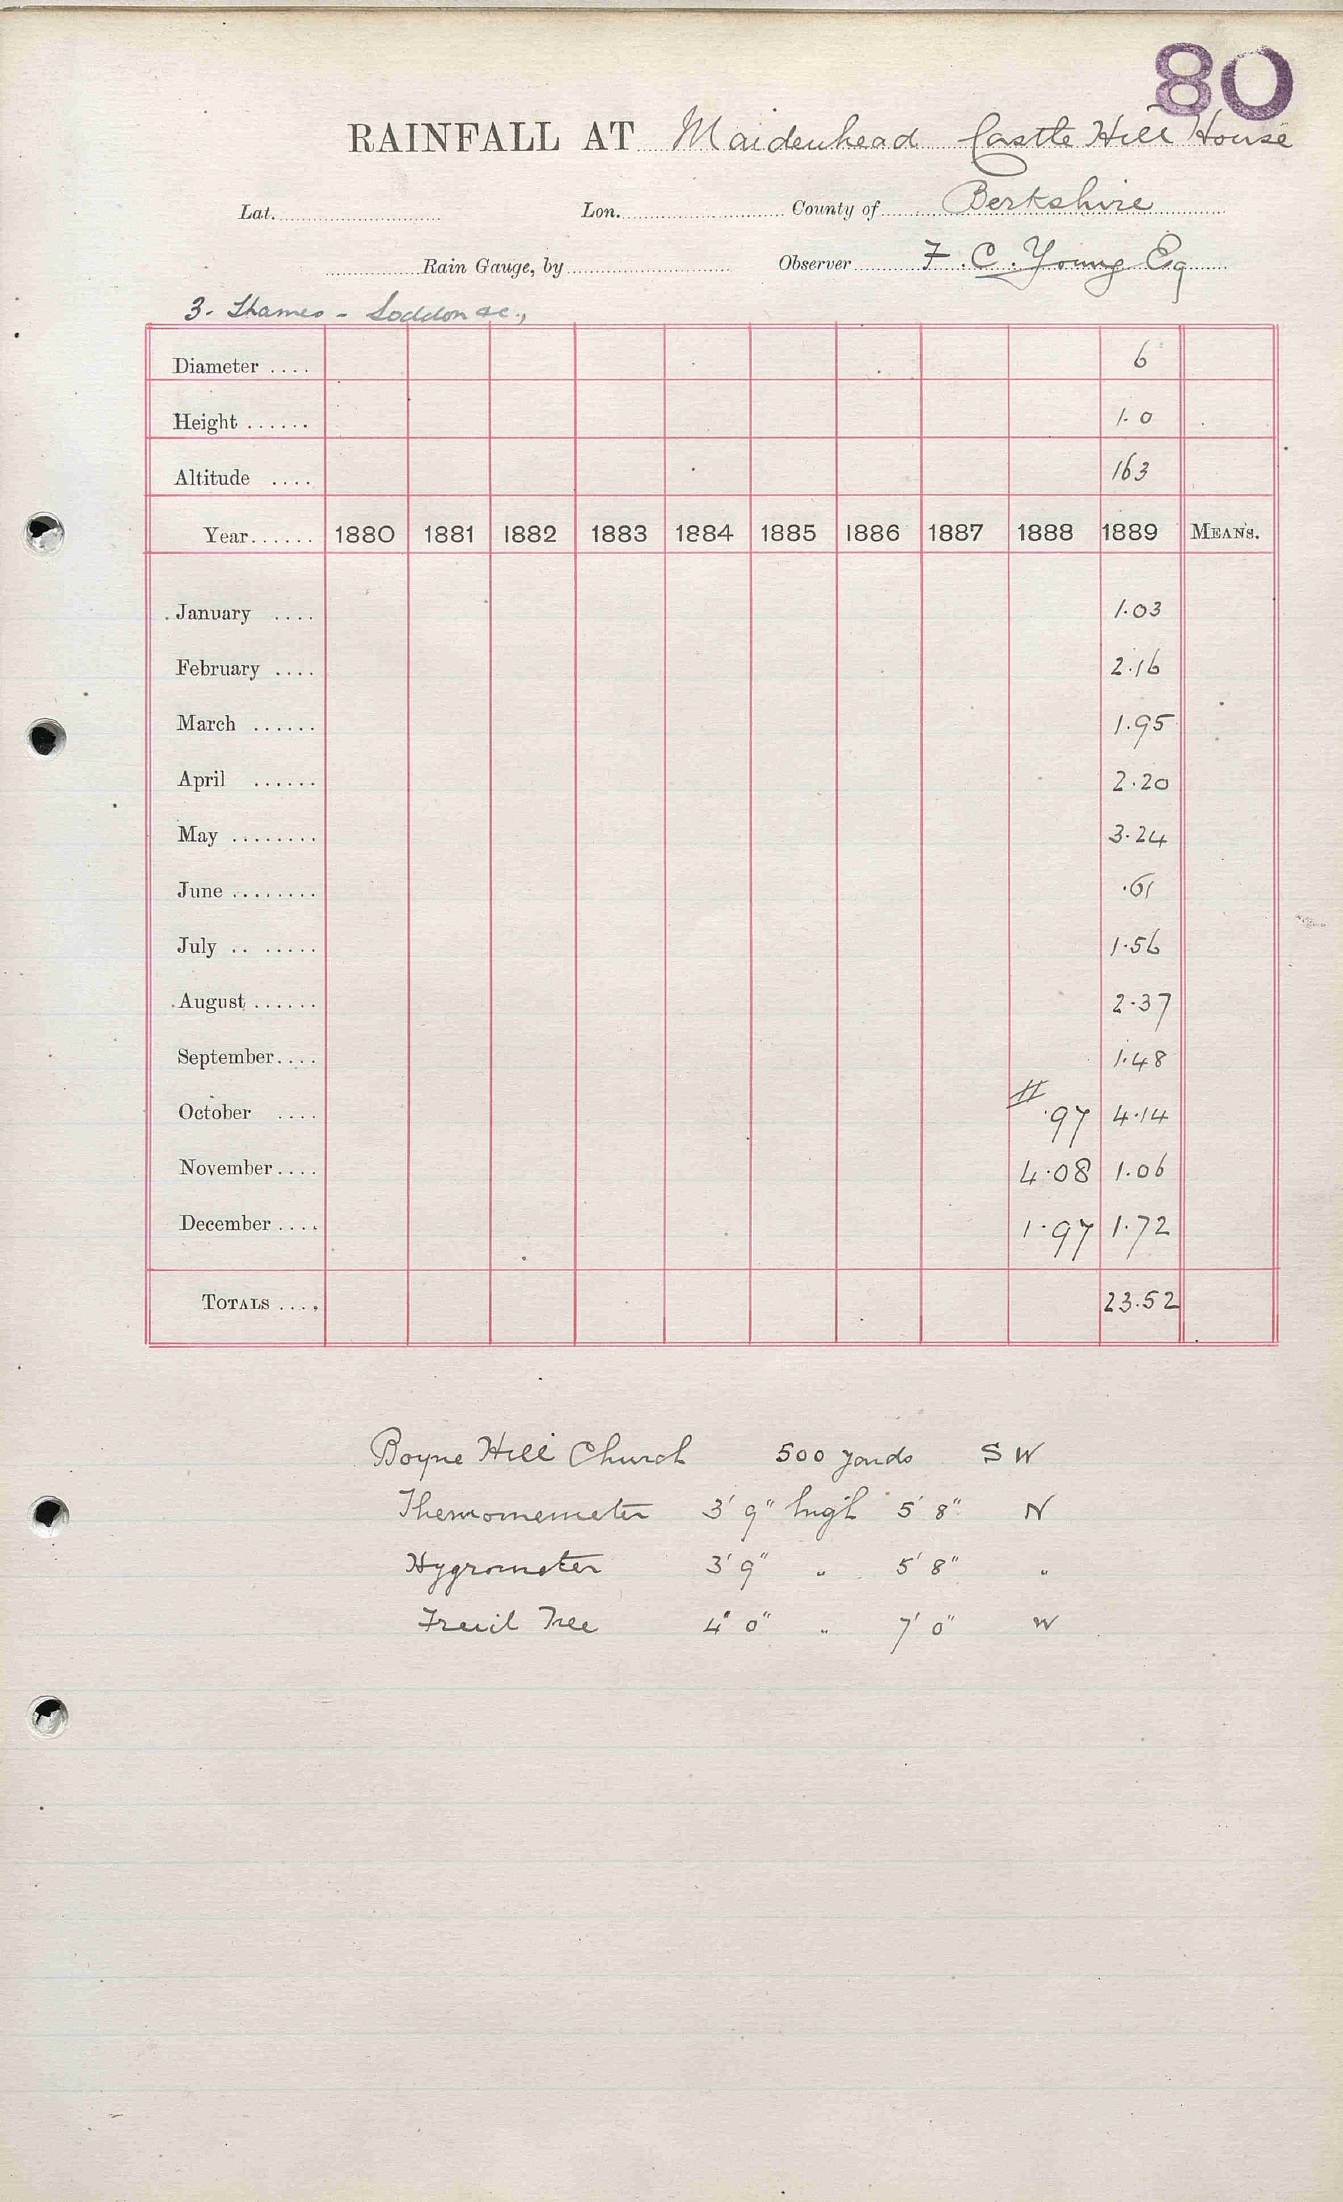 80
RAINFALL AT Maidenhead Castle Hill House
Lat. Lon. County of Berkshire
Rain Gauge, by Observer F. C. Young Esq
3. Thames - Loddon &c.,
Diameter .... 6
Height ...... 1.0
Altitude .... 163
Year...... 1880 1881 1882 1883 1884 1885 1886 1887 1888 1889 MEANS.
January .... 1.03
February .... 2.16
March ...... 1.95
April ...... 2.20
May ........ 3.24
June ........ .61
July .. ..... 1.56
August ...... 2.37
September.... 1.48
October .... .97 4.14
November.... 4.08 1.06
December.... 1.97 1.72
TOTALS .... 23.52
Boyne Hill Church 500 yards SW
Thermomemeter 3' 9" high 5' 8" N
Hygrometer 3' 9" " 5' 8" "
Fruit Tree 4' 0" " 7' 0" W